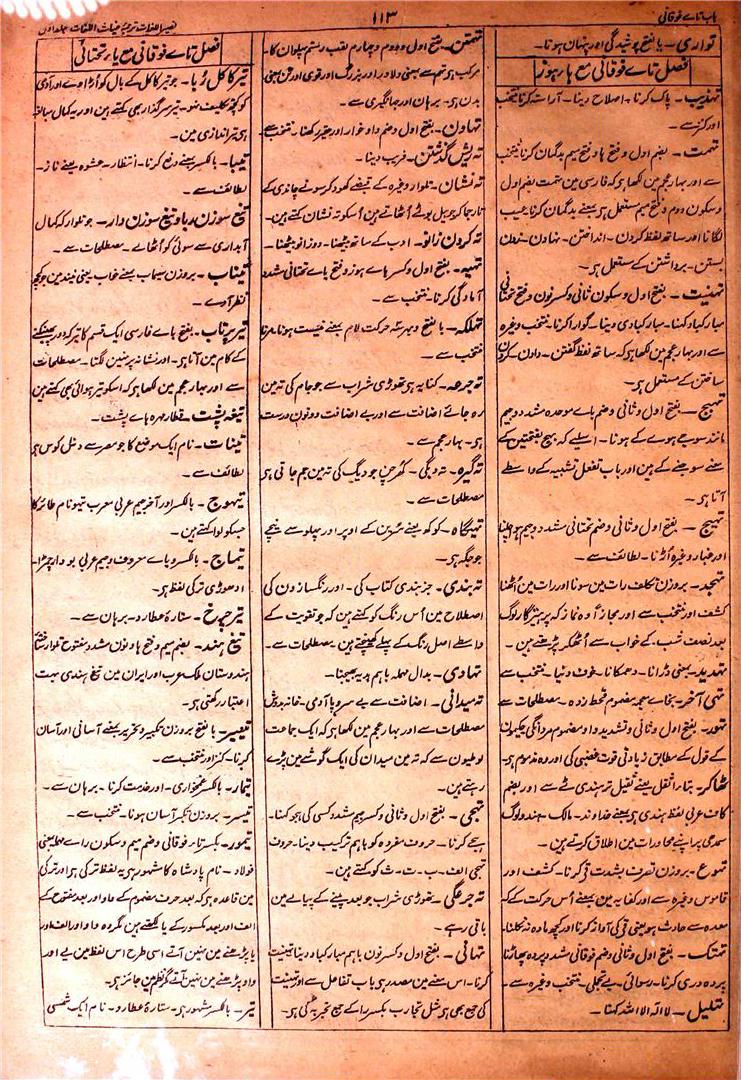 باب تاے فوقانی
۱۱۳
نصیر اللغات ترجمۂ غیاث اللغات جلد اول
تواری۔ بالفتح پوشیدگی اور پنہان ہونا۔
فصل تاے فوقانی مع ہاے ہوز
تہذیب۔ پاک کرنا۔ اصلاح دینا۔ آراستہ کرنا منتخب
اور کنز سے۔
تہمت۔ بضم اول و فتح ہا و فتح میم بدگمان کرنا منتخب
سے اور بہار عجم مین لکھا ہے کہ فارسی مین تہمت بضم اول
و سکون دوم و فتح میم مستعمل ہے بمعنے بدگمان کرنا و عیب
لگانا اور ساتھ لفظ کردن۔ انداختن۔ نہادن۔ زدن
بستن۔ برداشتن کے مستعمل ہے۔
تہنیت۔ بفتح اول و سکون ثانی و کسر نون و فتح تحتانی
مبارکباد کہنا۔ مبارکبادی دینا۔ گوارا کرنا۔ منتخب وغیرہ
سے اور بہار عجم مین لکھا ہے کہ ساتھ لفظ گفتن۔ دادن۔ کردن
ساختن کے مستعمل ہے۔
تہبج۔ بفتح اول و ثانی و ضم باے موحدہ مشدد و جیم
مانند سوجے ہوے کے ہونا۔ اسلیے کہ بہج بفتحتین کے
معنے سوجنے کے ہین اور باب تفعل تشبیہ کے واسطے
آتا ہے۔
تہیج۔ بفتح اول و ثانی و ضم تحتانی مشدد و جیم ہوا چلنا
اور غبار وغیرہ اُڑنا۔ لطائف سے۔
تہجد۔ بروزن تکلف رات مین سونا اور رات مین اُٹھنا
کشف اور منتخب سے اور مجازاً وہ نماز کہ پرہیزگار لوگ
بعد نصف شب کے خواب سے اُٹھکر پڑھتے ہین۔
تہدید۔ بمعنی ڈرانا۔ دھمکانا۔ خوف دینا۔ منتخب سے
تہی آخر۔ بخاے معجمہ مضموم قحط زدہ۔ مصطلحات سے
تہور۔ بفتح اول و ثانی و تشدید واو مضموم مردانگی حکیمون
کے قول کے مطابق زیادتی قوت غضبی کی اور وہ مذموم ہے۔
ٹھاکر۔ بتاء اثقل یعنے ثقیل تر ہندی ٹے سے اور بضم
کاف عربی لفظ ہندی ہے بمعنے خداوند۔ مالک۔ ہندو لوگ
اپنے محاورات مین اطلاق کرتے ہین۔
تہوع۔ بروزن تصرف بشدت قے کرنا۔ کشف اور
قاموس وغیرہ سے اور کفایہ مین بمعنے اُس حرکت کے کہ
معدہ سے حادث ہو یعنی قے کی آواز کرنا اور کچھ مادہ نہ نکلنا۔
تہتک۔ بفتح اول و ثانی و ضم فوقانی مشدد پردہ پھاڑنا
پردہ دری کرنا۔ رسوائی۔ بے تجلی۔ منتخب وغیرہ سے۔
تہلیل۔ لا الہ الا اللہ کہنا۔
تہمتن۔ بفتح اول و دوم و چہارم لقب رستم پہلوان کا۔
مرکب ہے تہم سے بمعنی دلاور اور بزرگ اور قوی اور تن بمعنی
بدن ہے۔ برہان اور جہانگیری سے۔
تہاون۔ بفتح اول و ضم واو خوار اور حقیر کہنا۔ منتخب سے
تہ ریش گذشتن۔ فریب دینا۔
تہ نشان۔ تلوار وغیرہ کے قبضے کھود کر سونے چاندی کے
تار جما کر جو بیل بوٹے اُٹھاتے ہین اُسکو تہ نشان کہتے ہین۔
تہ کردن زانو۔ ادب کے ساتھ بیٹھنا۔ دوزانو بیٹھنا۔
تہیہ۔ بفتح اول و کسر ہاے ہوز و فتح یاے تحتانی مشدد
آمادگی کرنا۔ منتخب سے۔
تہلکہ۔ بالفتح و بہر سہ حرکت لام بمعنے نیست ہونا۔ مرنا
منتخب سے۔
تہ جرعہ۔ کنایہ ہے تھوڑی شراب سے جو جام کی تہ مین
رہ جائے اضافت سے اور بے اضافت دونون درست
ہے۔ بہار عجم سے۔
تہ گیرہ۔ تہ دیگی۔ کھرچن جو دیگ کی تہ مین جم جاتی ہے
مصطلحات سے۔
تہیگاہ۔ کوکھ یعنے سُرین کے اوپر اور پہلو سے نیچے
جو جگہ ہے۔
تہ بندی۔ جزبندی کتاب کی۔ اور رنگسازون کی
اصطلاح مین اُس رنگ کو کہتے ہین کہ جو تقویت کے
واسطے اصل رنگ کے پہلے کھینچتے ہین مصطلحات سے۔
تہادی۔ بدال مہملہ باہم ہدیہ بھیجنا۔
تہ میدانی۔ اضافت سے بے سروپا آدمی۔ خانہ بدوش
مصطلحات سے اور بہار عجم مین لکھا ہے کہ ایک جماعت
لوطیون سے کہ تہ مین میدان کی ایک گوشے مین پڑے
رہتے ہین۔
تہجی۔ بفتح اول و ثانی و کسر جیم مشدد کسی کی ہجو کہنا۔
ہجے کرنا۔ حروف مفردہ کو باہم ترکیب دینا۔ حروف
تہجی الف۔ ب۔ ت۔ ث کو کہتے ہین۔
تہ جرعگی۔ تھوڑی شراب جو بعد پینے کے پیالے مین
باقی رہے۔
تہانی۔ بفتح اول و کسر نون باہم مبارکباد دینا تہنیت
کرنا۔ اس معنے مین مصدر ہے باب تفاعل سے اور تہنیت
کی جمع بھی ہے مثل تجارب بکسر راے کے جمع تجربہ کی ہے۔
فصل تاے فوقانی مع یاے تحتانی
تیر کاکل رُبا۔ جو تیر کاکل کے بال کو اُڑا دے اور آدمی
کو کچھ تکلیف نہو۔ تیر سر گذار بھی کہتے ہین اور یہ کمال مبالغہ
ہے تیر اندازی مین۔
تیبا۔ بالکسر بمعنے دفع کرنا۔ انتظار۔ عشوہ یعنے ناز۔
لطائف سے۔
تیغ سوزن ربا و تیغ سوزن دار۔ جو تلوار کہ کمال
آبداری سے سوئی کو اُٹھا لے۔ مصطلحات سے۔
تیناب۔ بروزن سیماب بمعنے خواب یعنی نیند مین جو کچھ
نظر آوے۔
تیر پرتاب۔ بفتح باے فارسی ایک قسم کا تیر کہ دور پھینکنے
کے کام مین آتا ہے۔ اور نشانہ پر نہین لگتا۔ مصطلحات
سے اور بہار عجم مین لکھا ہے کہ اسکو تیر ہوائی بھی کہتے ہین
تیغہ پشت۔ قطار مہرہ ہاے پشت۔
تینات۔ نام ایک موضع کا جو مصر سے دس کوس ہے
لطائف سے۔
تیہوج۔ بالکسر اور آخر جیم عربی معرب تیہو نام طائر کا
جسکو لوا کہتے ہین۔
تیماج۔ بالکسر و یاے معروف و جیم عربی بودار چمڑا۔
ادھوڑی ترکی لفظ ہے۔
تیر چرخ۔ ستارۂ عطارد۔ برہان سے۔
تیغ مہند۔ بضم میم و فتح ہا و نون مشدد مفتوح تلوار منسوب
ہندوستان ملک عرب اور ایران مین تیغ ہندی بہت
اعتبار رکھتی ہے۔
تیسیر۔ بالفتح بروزن تکبیر و تحریر بمعنے آسانی اور آسان
کرنا۔ کنز اور منتخب سے۔
تیمار۔ بالکسر غمخواری۔ اور خدمت کرنا۔ برہان سے۔
تیسر۔ بروزن تکبر آسان ہونا۔ منتخب سے۔
تیمور۔ بکسر تاء فوقانی و ضم میم و سکون راے مہملہ یعنی
فولاد۔ نام بادشاہ کا مشہور ہے یہ لفظ ترکی ہے اور ترکی
مین قاعدہ ہے کہ بعد حرف مضموم کے واو اور بعد مفتوح کے
الف اور بعد مکسور کے یا لکھتے ہین مگر وہ واو اور الف اور
یا پڑھنے مین نہین آتے اسی طرح اس لفظ مین یے اور
واو پڑھنے مین نہین آتے مگر نظم مین جائز ہے۔
تیر۔ بالکسر مشہور ہے۔ ستارۂ عطارد۔ نام ایک شمسی